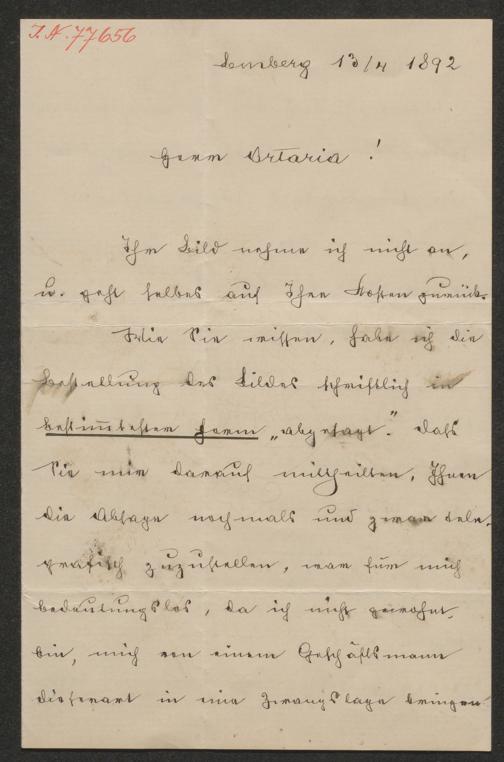 I.N. 77656
Lemberg 13/4 1892
Herrn Artaria!
Ihr Bild nehme ich nicht an,
u. geht selbes auf Ihre Kosten zurück.
Wie Sie wissen, habe ich die
Bestellung des Bildes schriftlich in
bestimmtester Form „abgesagt." Daß
Sie mir darauf mittheilten, Ihnen
die Absage nochmals und zwar tele-
grafisch zuzustellen, war für mich
bedeutungslos, da ich nicht gewohnt
bin, mich von einem Geschäftsmann
dieserart in eine Zwangslage bringen